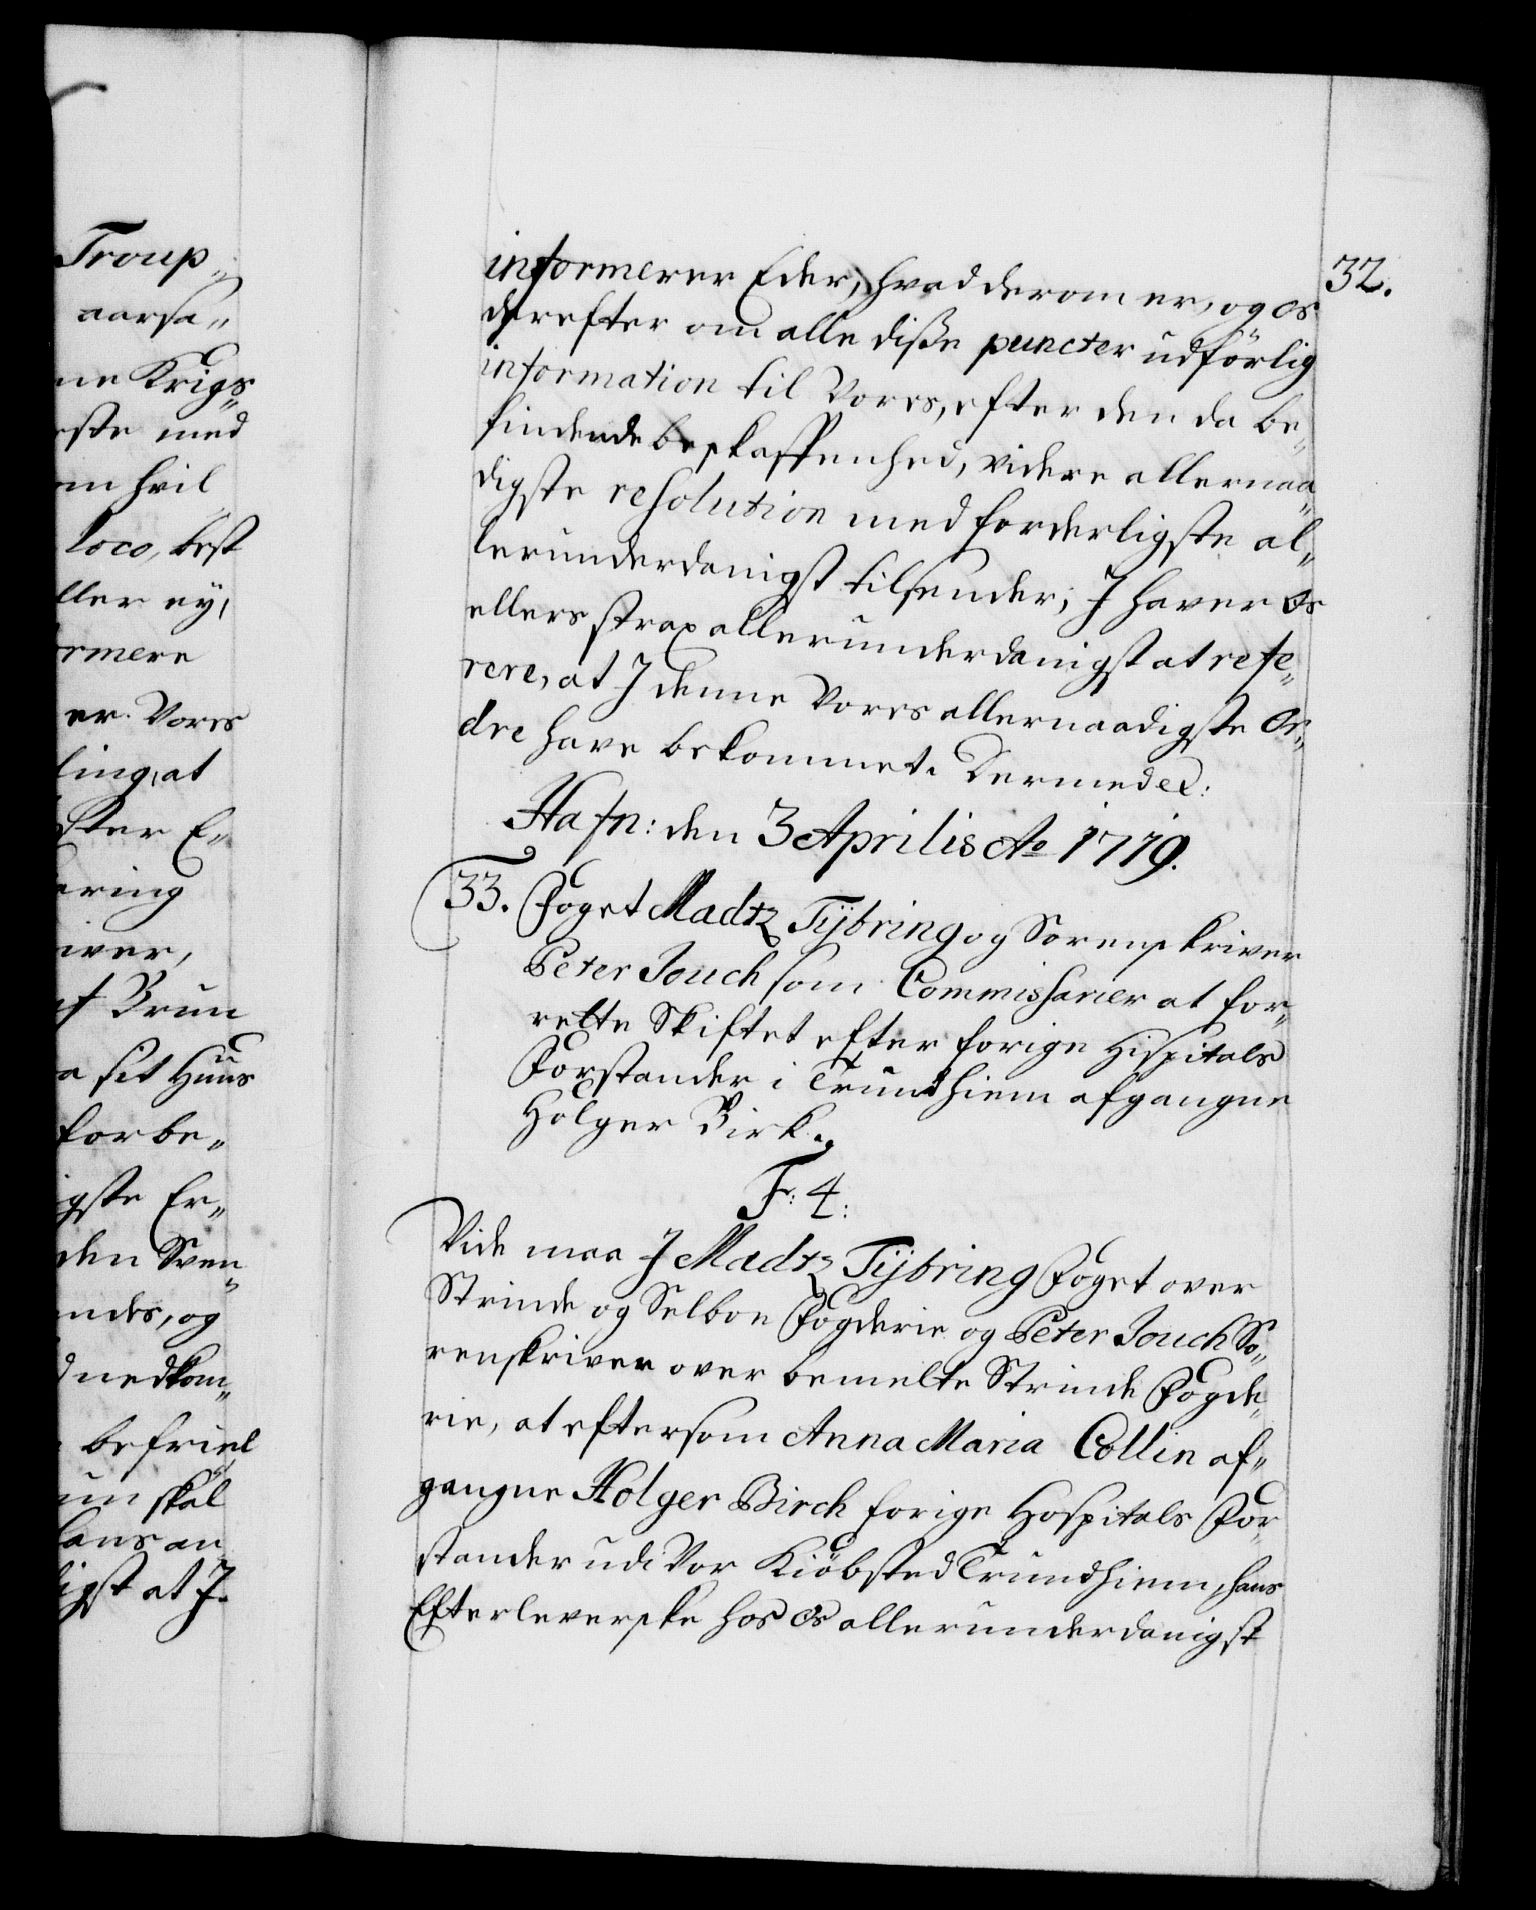 Troup„
aarsa„
ne Krigs„
rste med
em hvil
loco, best
ller ey,
ormere
er. Vores
ling, at
ster E„
ering
iver,
Brun
a sit Huus
forbe„
igste Er„
den Sven„
ndes, og
nedkom„
befriet
un skal
hans an
igst at I.
32.
informerer Eder, hvad derom er, og os
derefter om alle disse puncter udförlig
information til Vores, efter den da be„
findende beskaffenhed, videre allernaa„
digste resolution med forderligste al„
lerunderdanigst tilsender; I haver Os
ellers strax allerunderdanigst at refe„
rere, at I denne Vores allernaadigste Or„
dre have bekommet. Dermed etc:
Hafn: den 3 Aprilis Ao 1719.
33. Foget Madtz Tÿbring og Sorenskriver
Peter Jouch som Commissarier at for„
rette Skiftet efter forige Hispitals
Forstander i Trundhiem afgangne
Holger Birk.
F: 4:
Vide maa I Madtz Tÿbring Foget over
Strinde og Selboe Fogderie og Peter Jouch So„
renskriver over bemelte Strinde Fogde„
rie, at eftersom Anna Maria Collin af„
gangne Holger Birch forige Hospitals For„
stander udi Vor Kiöbsted Trundhiem, hans
Efterleverske hos Os allerunderdanigst